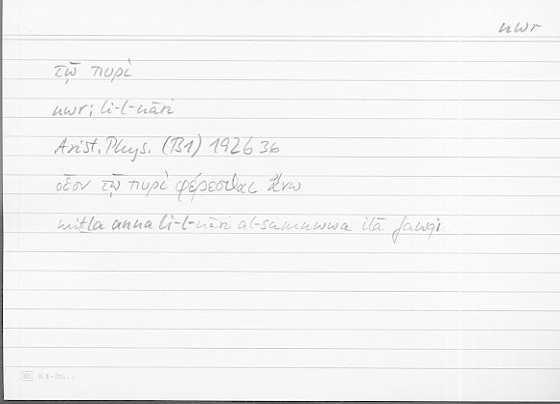 nwr
τῷ πυρὶ
nwr; li-l-nāri
Arist. Phys. (B1) 192b36
οἷον τῷ πυρὶ φέρεσθαι ἄνω
miṯla anna li-l-nāri al-sumuwwa ilā fawqi